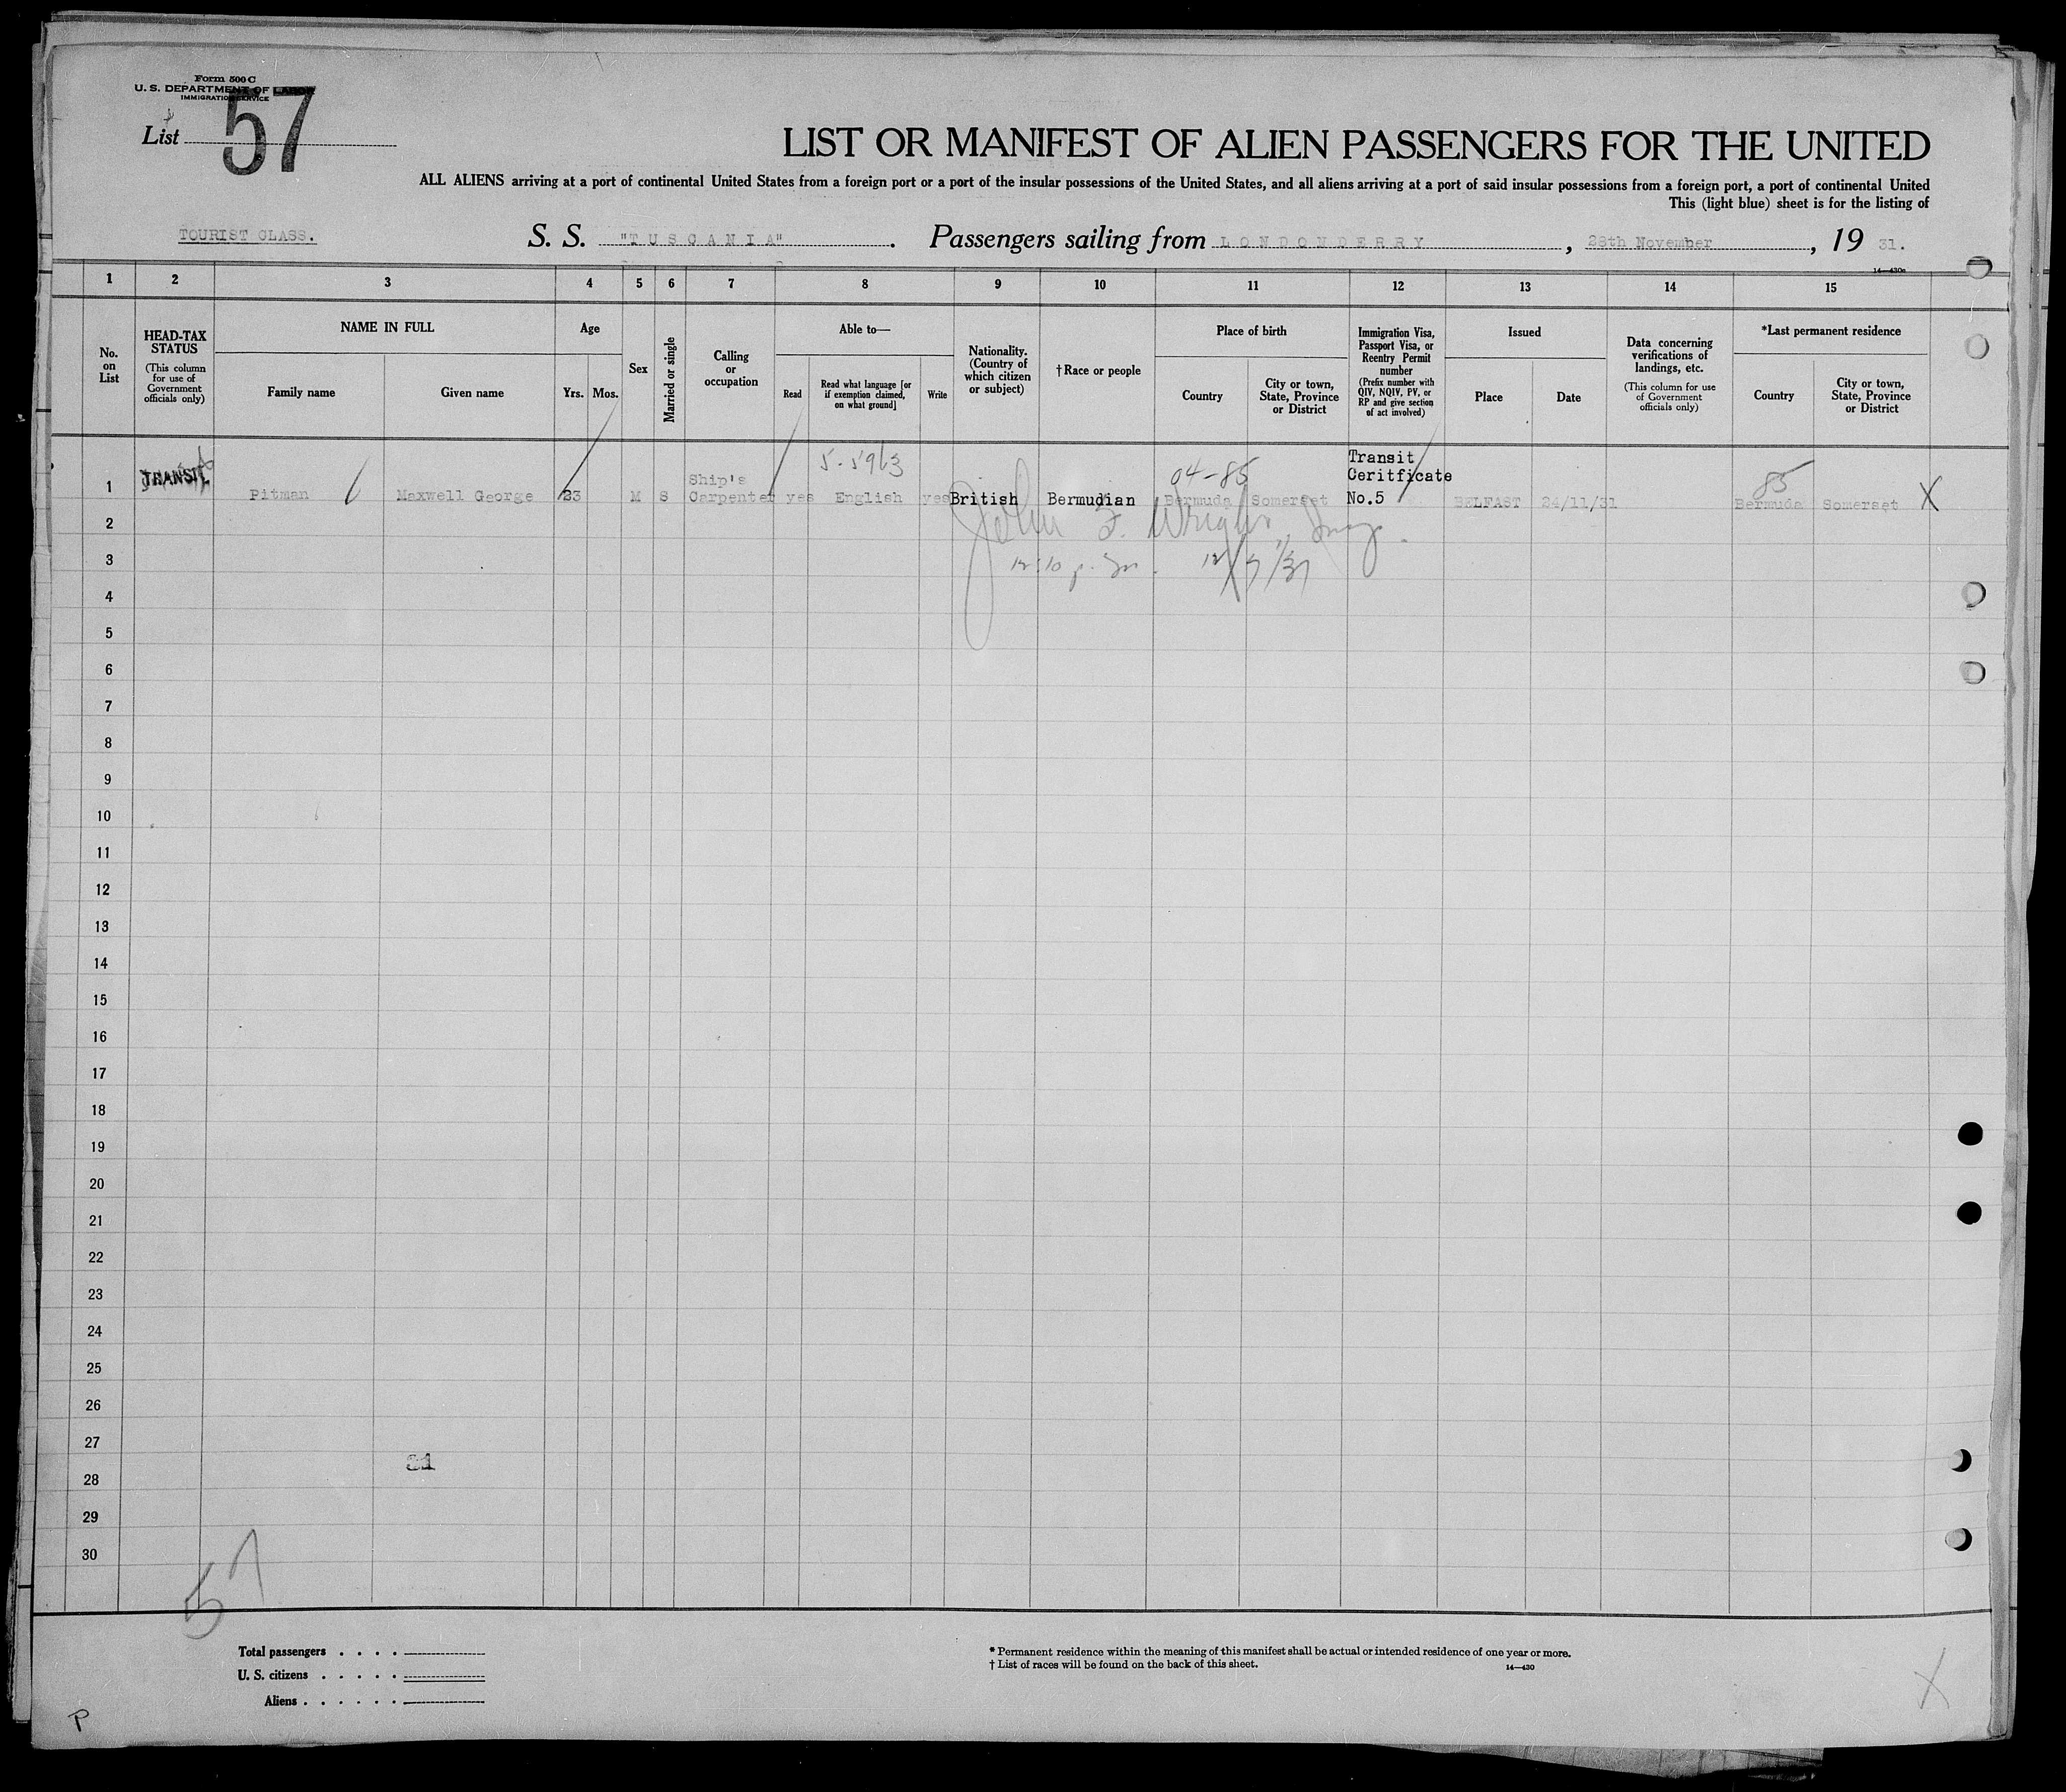 Form 500 C
U. S. DEPARTMENT OF LABOR
IMMIGRATION SERVICE
List 57
LIST OR MANIFEST OF ALIEN PASSENGERS FOR THE UNITED
ALL ALIENS arriving at a port of continental United States from a foreign port or a port of the insular possessions of the United States, and all aliens arriving at a port of said insular possessions from a foreign port, a port of continental United
This (light blue) sheet is for the listing of
TOURIST CLASS. S. S. "TUSCANIA" . Passengers sailing from LONDONDERRY , 28th November , 19 31.
14—430a
1 2 3 4 5 6 7 8 9 10 11 12 13 14 15
No. on List
HEAD-TAX STATUS
(This column for use of Government officials only)
NAME IN FULL
Family name Given name
Age
Yrs. Mos.
Sex
Married or single
Calling or occupation
Able to—
Read
Read what language [or if exemption claimed, on what ground]
Write
Nationality. (Country of which citizen or subject)
†Race or people
Place of birth
Country
City or town, State, Province or District
Immigration Visa, Passport Visa, or Reentry Permit number
(Prefix number with QIV, NQIV, PV, or RP and give section of act involved)
Issued
Place Date
Data concerning verifications of landings, etc.
(This column for use of Government officials only)
*Last permanent residence
Country
City or town, State, Province or District
5-5963
04-85
85
1 TRANSIT Pitman Maxwell George 23 M S Ship's Carpenter yes English yes British Bermudian Bermuda Somerset Transit Ceritficate No.5 BELFAST 24/11/31 Bermuda Somerset X
2
John F. Wright, Insp.
3
12:10 p.m. 12/7/31
4
5
6
7
8
9
10
11
12
13
14
15
16
17
18
19
20
21
22
23
24
25
26
27
28
29
30
57
Total passengers . . . .
U. S. citizens . . . . .
Aliens . . . . . .
* Permanent residence within the meaning of this manifest shall be actual or intended residence of one year or more.
† List of races will be found on the back of this sheet.
14—430
P
X